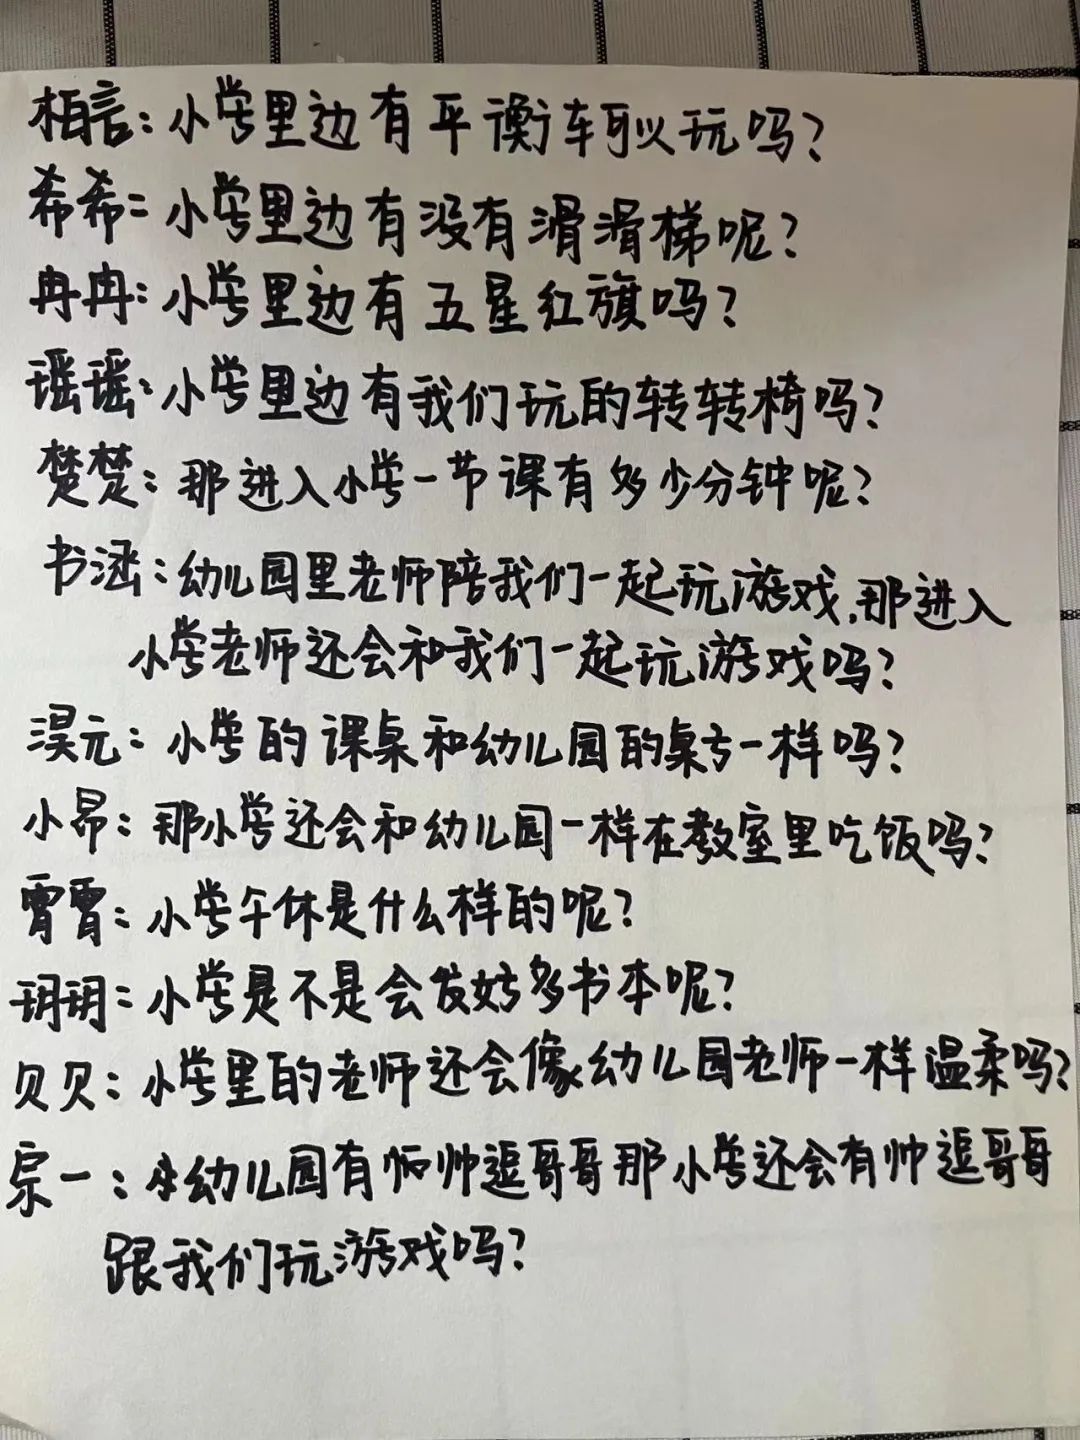 柏言：小学里边有平衡车可以玩吗？
希希：小学里边有没有滑滑梯呢？
冉冉：小学里边有五星红旗吗？
瑶瑶：小学里边有我们玩的转转椅吗？
楚楚：那进入小学一节课有多少分钟呢？
书涵：幼儿园里老师陪我们一起玩游戏，那进入
小学老师还会和我们一起玩游戏吗？
淏元：小学的课桌和幼儿园的桌子一样吗？
小昂：那小学还会和幼儿园一样在教室里吃饭吗？
霄霄：小学午休是什么样的呢？
玥玥：小学是不是会发好多书本呢？
贝贝：小学里的老师还会像幼儿园老师一样温柔吗？
宗一：幼儿园有帅逗哥哥那小学还会有帅逗哥哥
跟我们玩游戏吗？